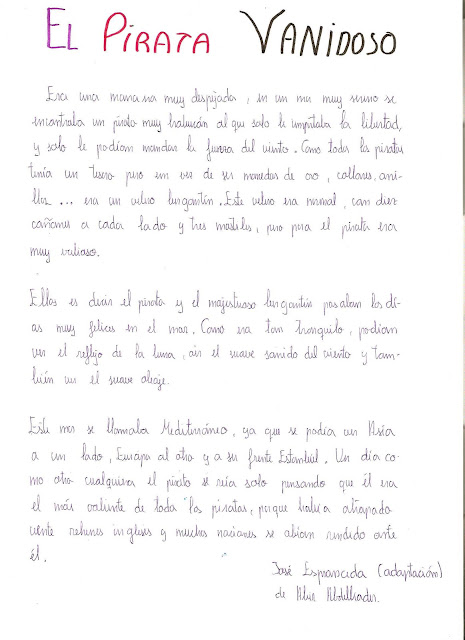 EL PIRATA VANIDOSO
Era una manana muy despejada, en un mar muy sereno se
encontraba un pirata muy balucán al que solo le importaba la libertad,
y solo le podían mandar la fuerza del viento. Como todos los piratas
tenía un tesoro pero en vez de ser monedas de oro, collares, ani-
llos... era un velero bergantín. Este velero era normal, con diez
cañones a cada lado y tres mastiles, pero para el pirata era
muy valioso.
Ellos es decir el pirata y el majestuoso bergantín pasaban los dí-
as muy felices en el mar. Como era tan tranquilo, podían
ver el reflejo de la luna, oir el suave sonido del viento y tam-
bién ver el suave oleaje.
Este mar se llamaba Mediterráneo, ya que se podía ver Asia
a un lado, Europa al otro y a su frente Estambúl. Un día co-
mo otro cualquiera el pirata se reía solo pensando que él era
el más valiente de todos los piratas, porque había atrapado
veinte rehenes ingleses y muchas naciones se abían rendido ante
él.
José Espronceda (adaptación)
de Abdelkader.